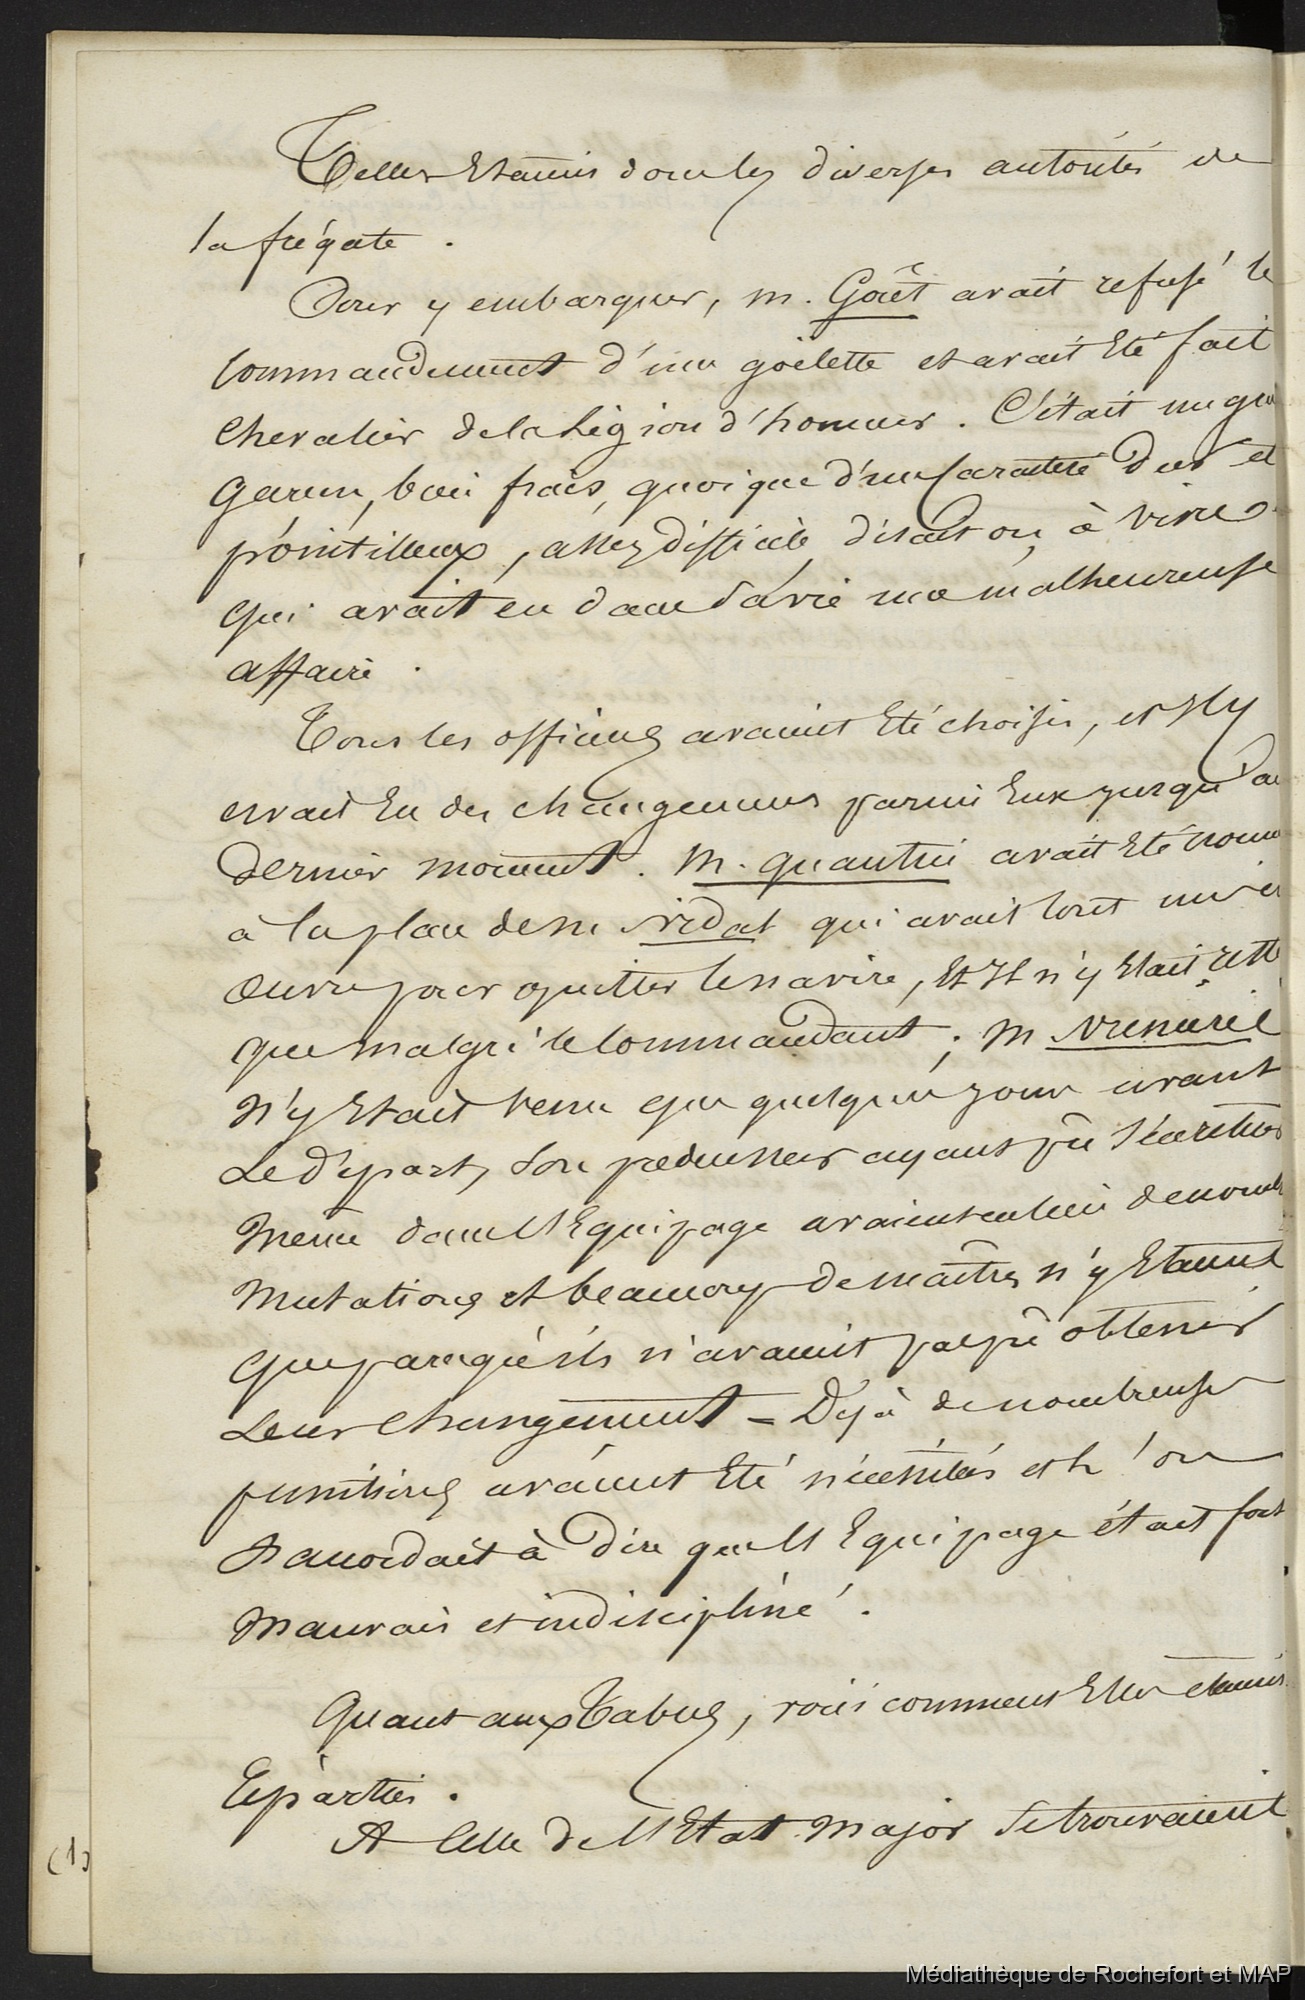 Telles Etaient donc les diverses autorités de
la frégate.
Pour y embarquer, m. Goüêt avait refusé le
Commandement d'une goëlette et avait Eté fait
Chevalier de la Légion d'honneur. C'était un
Garçon, bon frais, quoique d'un Caractère dur et
pointilleux, assez difficile, disait on, à vivre
qui avait eu dans sa vie une malheureuse
affaire.
Tous les officiers avaient Eté choisis, et Il y
avait Eu des changements parmi Eux jusqu'au
Dernier moment. M. quantin avait Eté
à la place de M. Vidal qui avait tout mis en
œuvre pour quitter le navire, Et Il n'y Etait resté
que malgré le Commandant; M
n'y Etait venu que quelques jours avant
Le Départ, Son prédécesseur ayant pû
même dans l'Equipage avaient eu lieu de
mutations et beaucoup de maîtres n'y Etaient
que parcequ'ils n'avaient pas pû obtenir
Leur Changement = Déjà de nombreuses
punitions avaient Eté nécessitées et l'on
s'accordait à dire que l'Equipage était fort
mauvais et indiscipliné.
Quant aux Tables, voici comment Elles étaient
réparties.
A Celle de l'Etat Major se trouvaient
(1)
Médiathèque de Rochefort et MAP